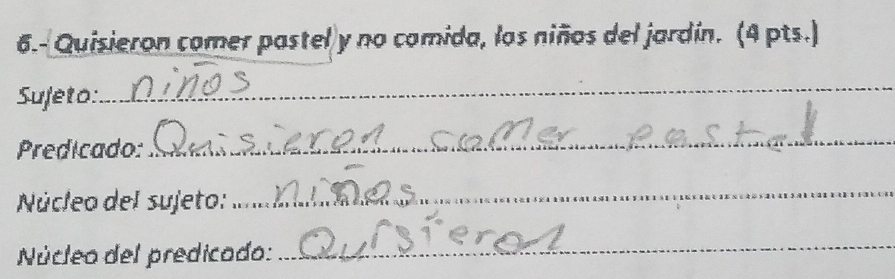 6.- Quisieron comer pastel y no comida, los niños del jardín. (4 pts.)
Sujeto: niños
Predicado: Quisieron comer pastel
Núcleo del sujeto: niños
Núcleo del predicado: Quisieron